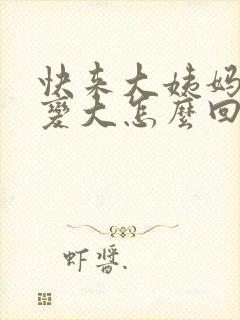 快来大姨妈
变大怎麼回
虾酱.